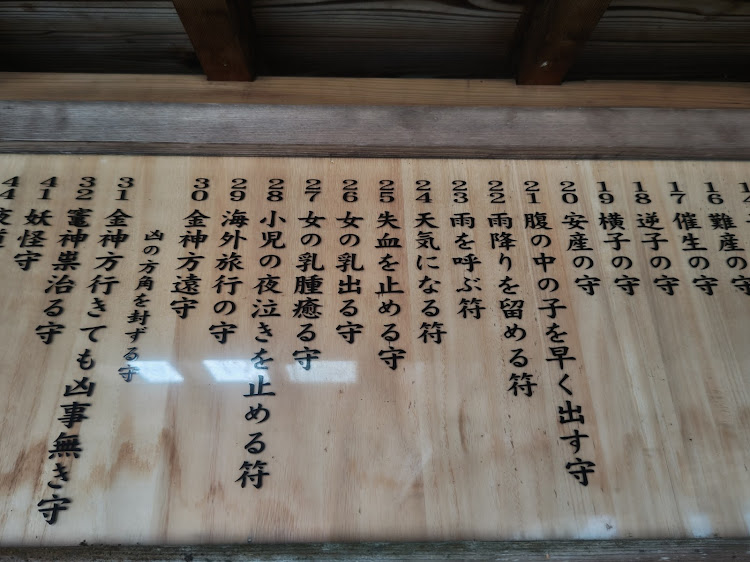 16 難産の守
17 催生の守
18 逆子の守
19 横子の守
20 安産の守
21 腹の中の子を早く出す守
22 雨降りを留める符
23 雨を呼ぶ符
24 天気になる符
25 失血を止める守
26 女の乳出る守
27 女の乳腫癒る守
28 小児の夜泣きを止める符
29 海外旅行の守
30 金神方遠守
凶の方角を封ずる守
31 金神方行きても凶事無き守
32 竈神祟治る守
41 妖怪守
44